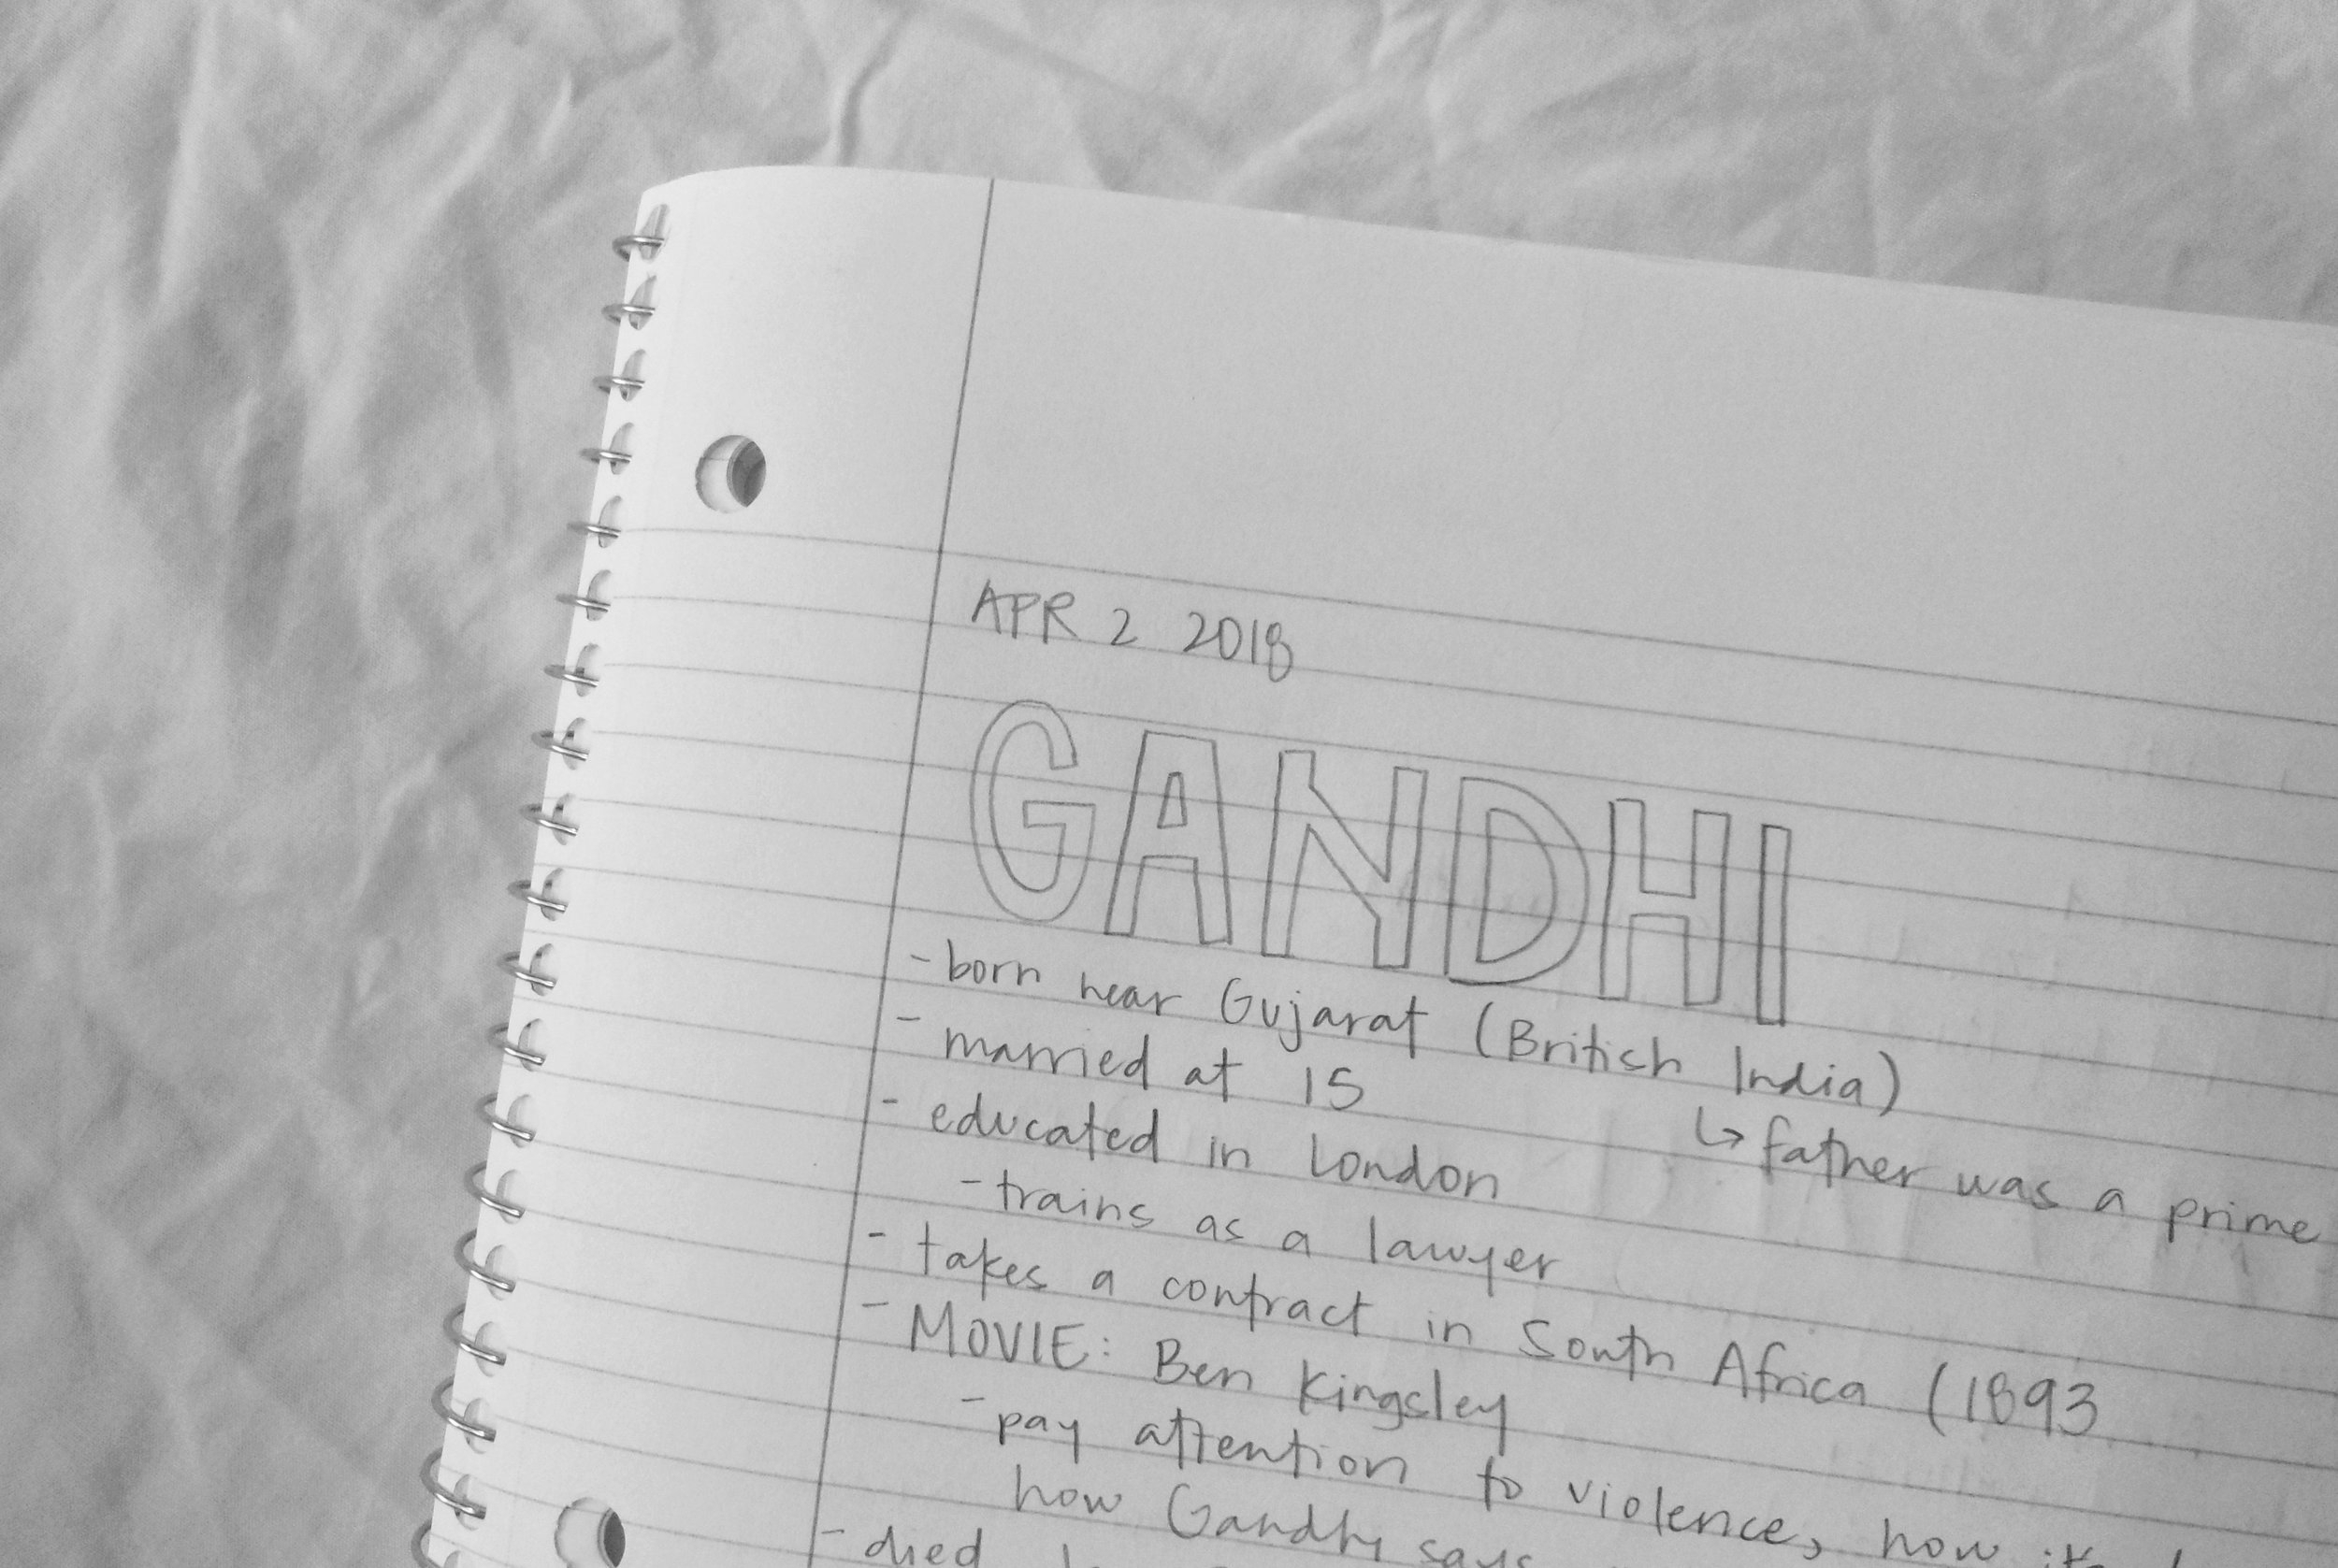 APR 2 2018
GANDHI
- born near Gujarat (British India)
↳ father was a prime
- married at 15
- educated in London
- trains as a lawyer
- takes a contract in South Africa (1893
- MOVIE: Ben Kingsley
- pay attention to violence, how it's
how Gandhi says
- died